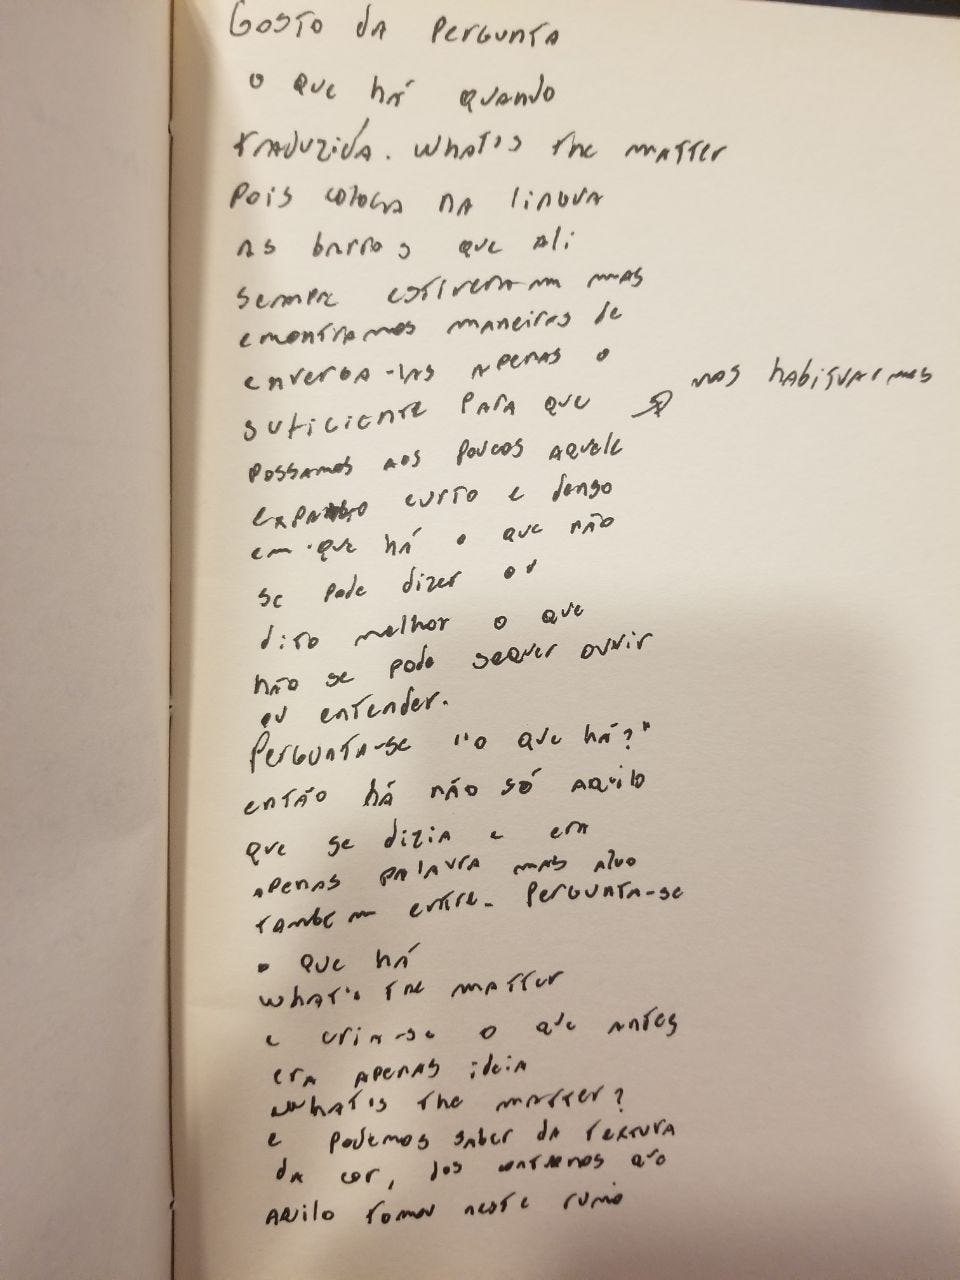 Gosto da pergunta
o que há quando
traduzida. What's the matter
pois coloca na língua
as barras que ali
sempre estiveram mas
encontramos maneiras de
enverga-las apenas o
suficiente para que
nos habituarmos
possamos aos poucos aquele
curto e denso
em que há o que não
se pode dizer ou
dito melhor o que
não se pode sequer ouvir
ou entender.
Pergunta-se "o que há?"
então há não só aquilo
que se dizia e era
apenas palavra mas algo
também entre. Pergunta-se
o que há
what's the matter
e cria-se o que antes
era apenas ideia
what is the matter?
e podemos saber da textura
da cor, dos contornos que
aquilo tomou neste rumo